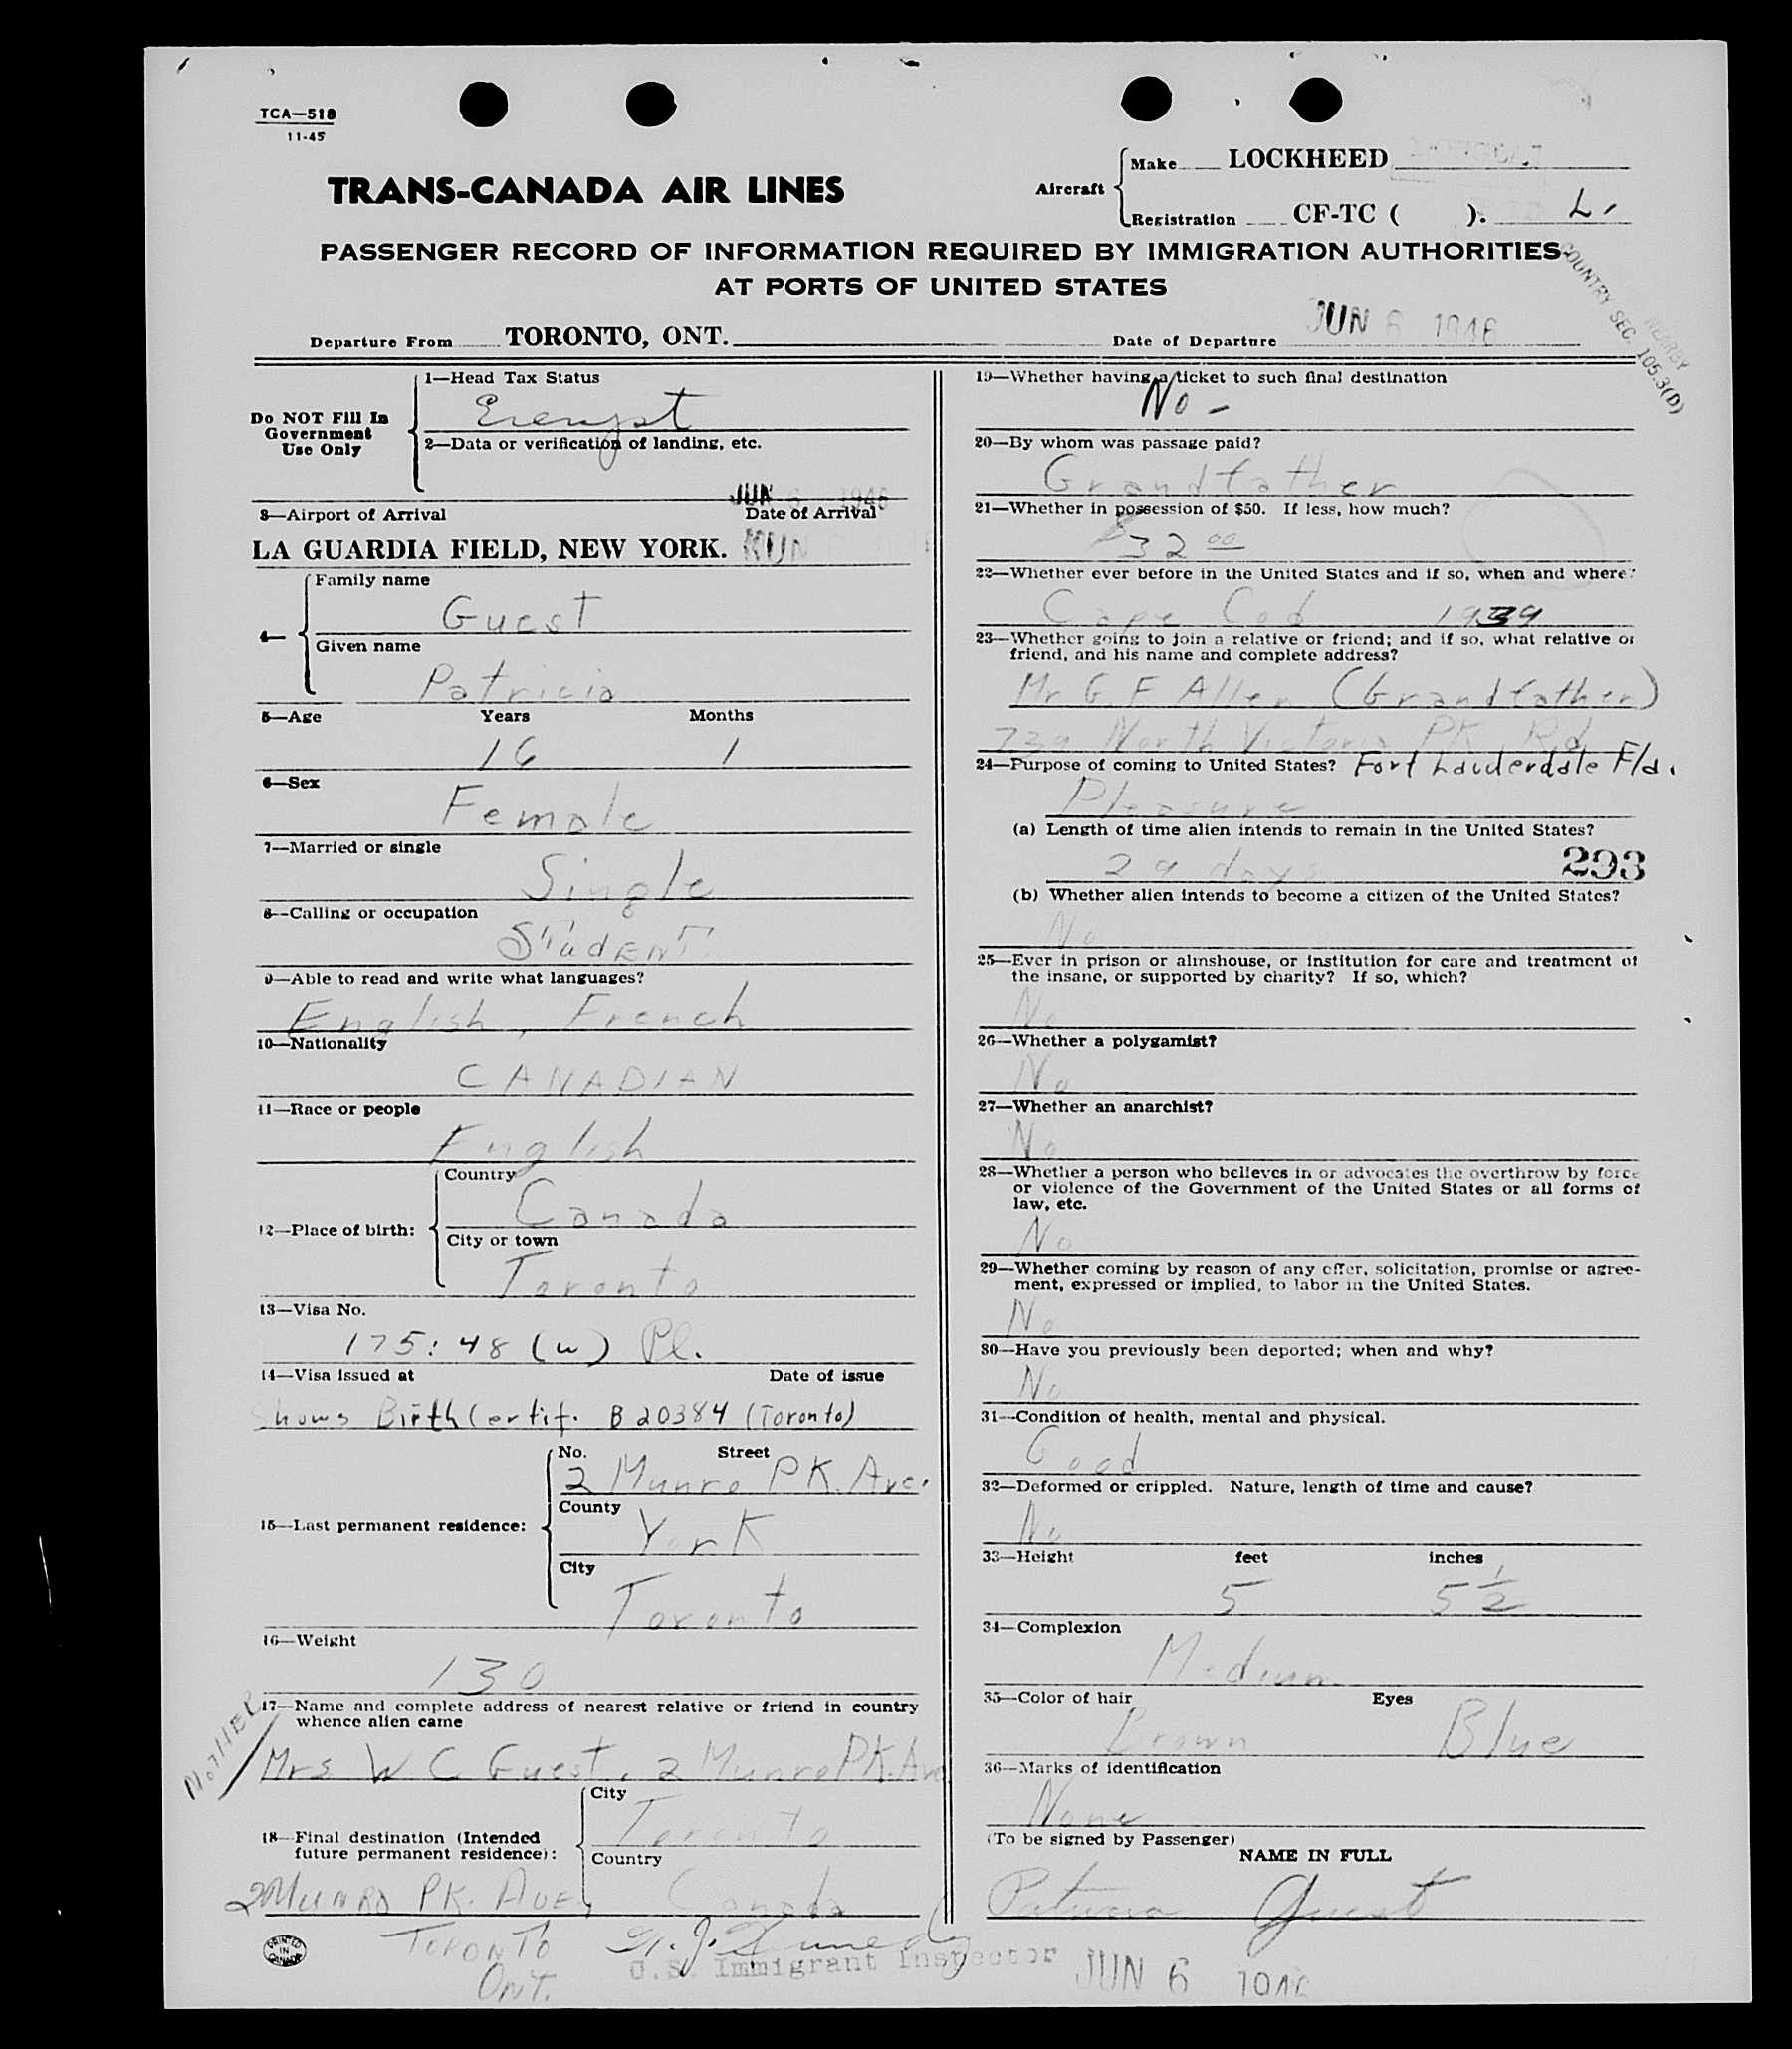 TCA—518
11-45
TRANS-CANADA AIR LINES
Aircraft
Make LOCKHEED
Registration CF-TC ( ). L.
PASSENGER RECORD OF INFORMATION REQUIRED BY IMMIGRATION AUTHORITIES
AT PORTS OF UNITED STATES
COUNTRY SEC. 105.3(D)
NEARBY
Departure From TORONTO, ONT.
Date of Departure JUN 6 1946
Do NOT Fill In
Government
Use Only
1—Head Tax Status
Exempt
2—Data or verification of landing, etc.
JUN 6 1946
3—Airport of Arrival Date of Arrival
LA GUARDIA FIELD, NEW YORK. JUN
4—
Family name
Guest
Given name
Patricia
5—Age Years Months
16 1
6—Sex
Female
7—Married or single
Single
8—Calling or occupation
STudENT
9—Able to read and write what languages?
English, French
10—Nationality
CANADIAN
11—Race or people
English
12—Place of birth:
Country
Canada
City or town
Toronto
13—Visa No.
175:48 (w) Pl.
14—Visa issued at Date of issue
Shows Birth Certif. B 20384 (Toronto)
15—Last permanent residence:
No. Street
2 Munro PK. Ave.
County
York
City
Toronto
16—Weight
130
17—Name and complete address of nearest relative or friend in country
whence alien came
MOTHER
Mrs W C Guest, 2 Munro PK. Ave
18—Final destination (Intended
future permanent residence):
City
Toronto
Country
Canada
2 MUNRO PK. AVE,
TORONTO
ONT.
PRINTED
IN
CANADA
U.S. Immigrant Inspector
JUN 6 1946
19—Whether having a ticket to such final destination
No -
20—By whom was passage paid?
Grandfather
21—Whether in possession of $50. If less, how much?
$32 00
22—Whether ever before in the United States and if so, when and where?
Cape Cod 1939
23—Whether going to join a relative or friend; and if so, what relative or
friend, and his name and complete address?
Mr G. F Allen (Grandfather)
739 North Victoria PK. Rd
Fort Lauderdale Fla.
24—Purpose of coming to United States?
Pleasure
(a) Length of time alien intends to remain in the United States?
29 days
293
(b) Whether alien intends to become a citizen of the United States?
No
25—Ever in prison or almshouse, or institution for care and treatment of
the insane, or supported by charity? If so, which?
No
26—Whether a polygamist?
No
27—Whether an anarchist?
No
28—Whether a person who believes in or advocates the overthrow by force
or violence of the Government of the United States or all forms of
law, etc.
No
29—Whether coming by reason of any offer, solicitation, promise or agree-
ment, expressed or implied, to labor in the United States.
No
30—Have you previously been deported; when and why?
No
31—Condition of health, mental and physical.
Good
32—Deformed or crippled. Nature, length of time and cause?
No
33—Height feet inches
5 5 1/2
34—Complexion
Medium
35—Color of hair Eyes
Brown Blue
36—Marks of identification
None
(To be signed by Passenger)
NAME IN FULL
Patricia Guest